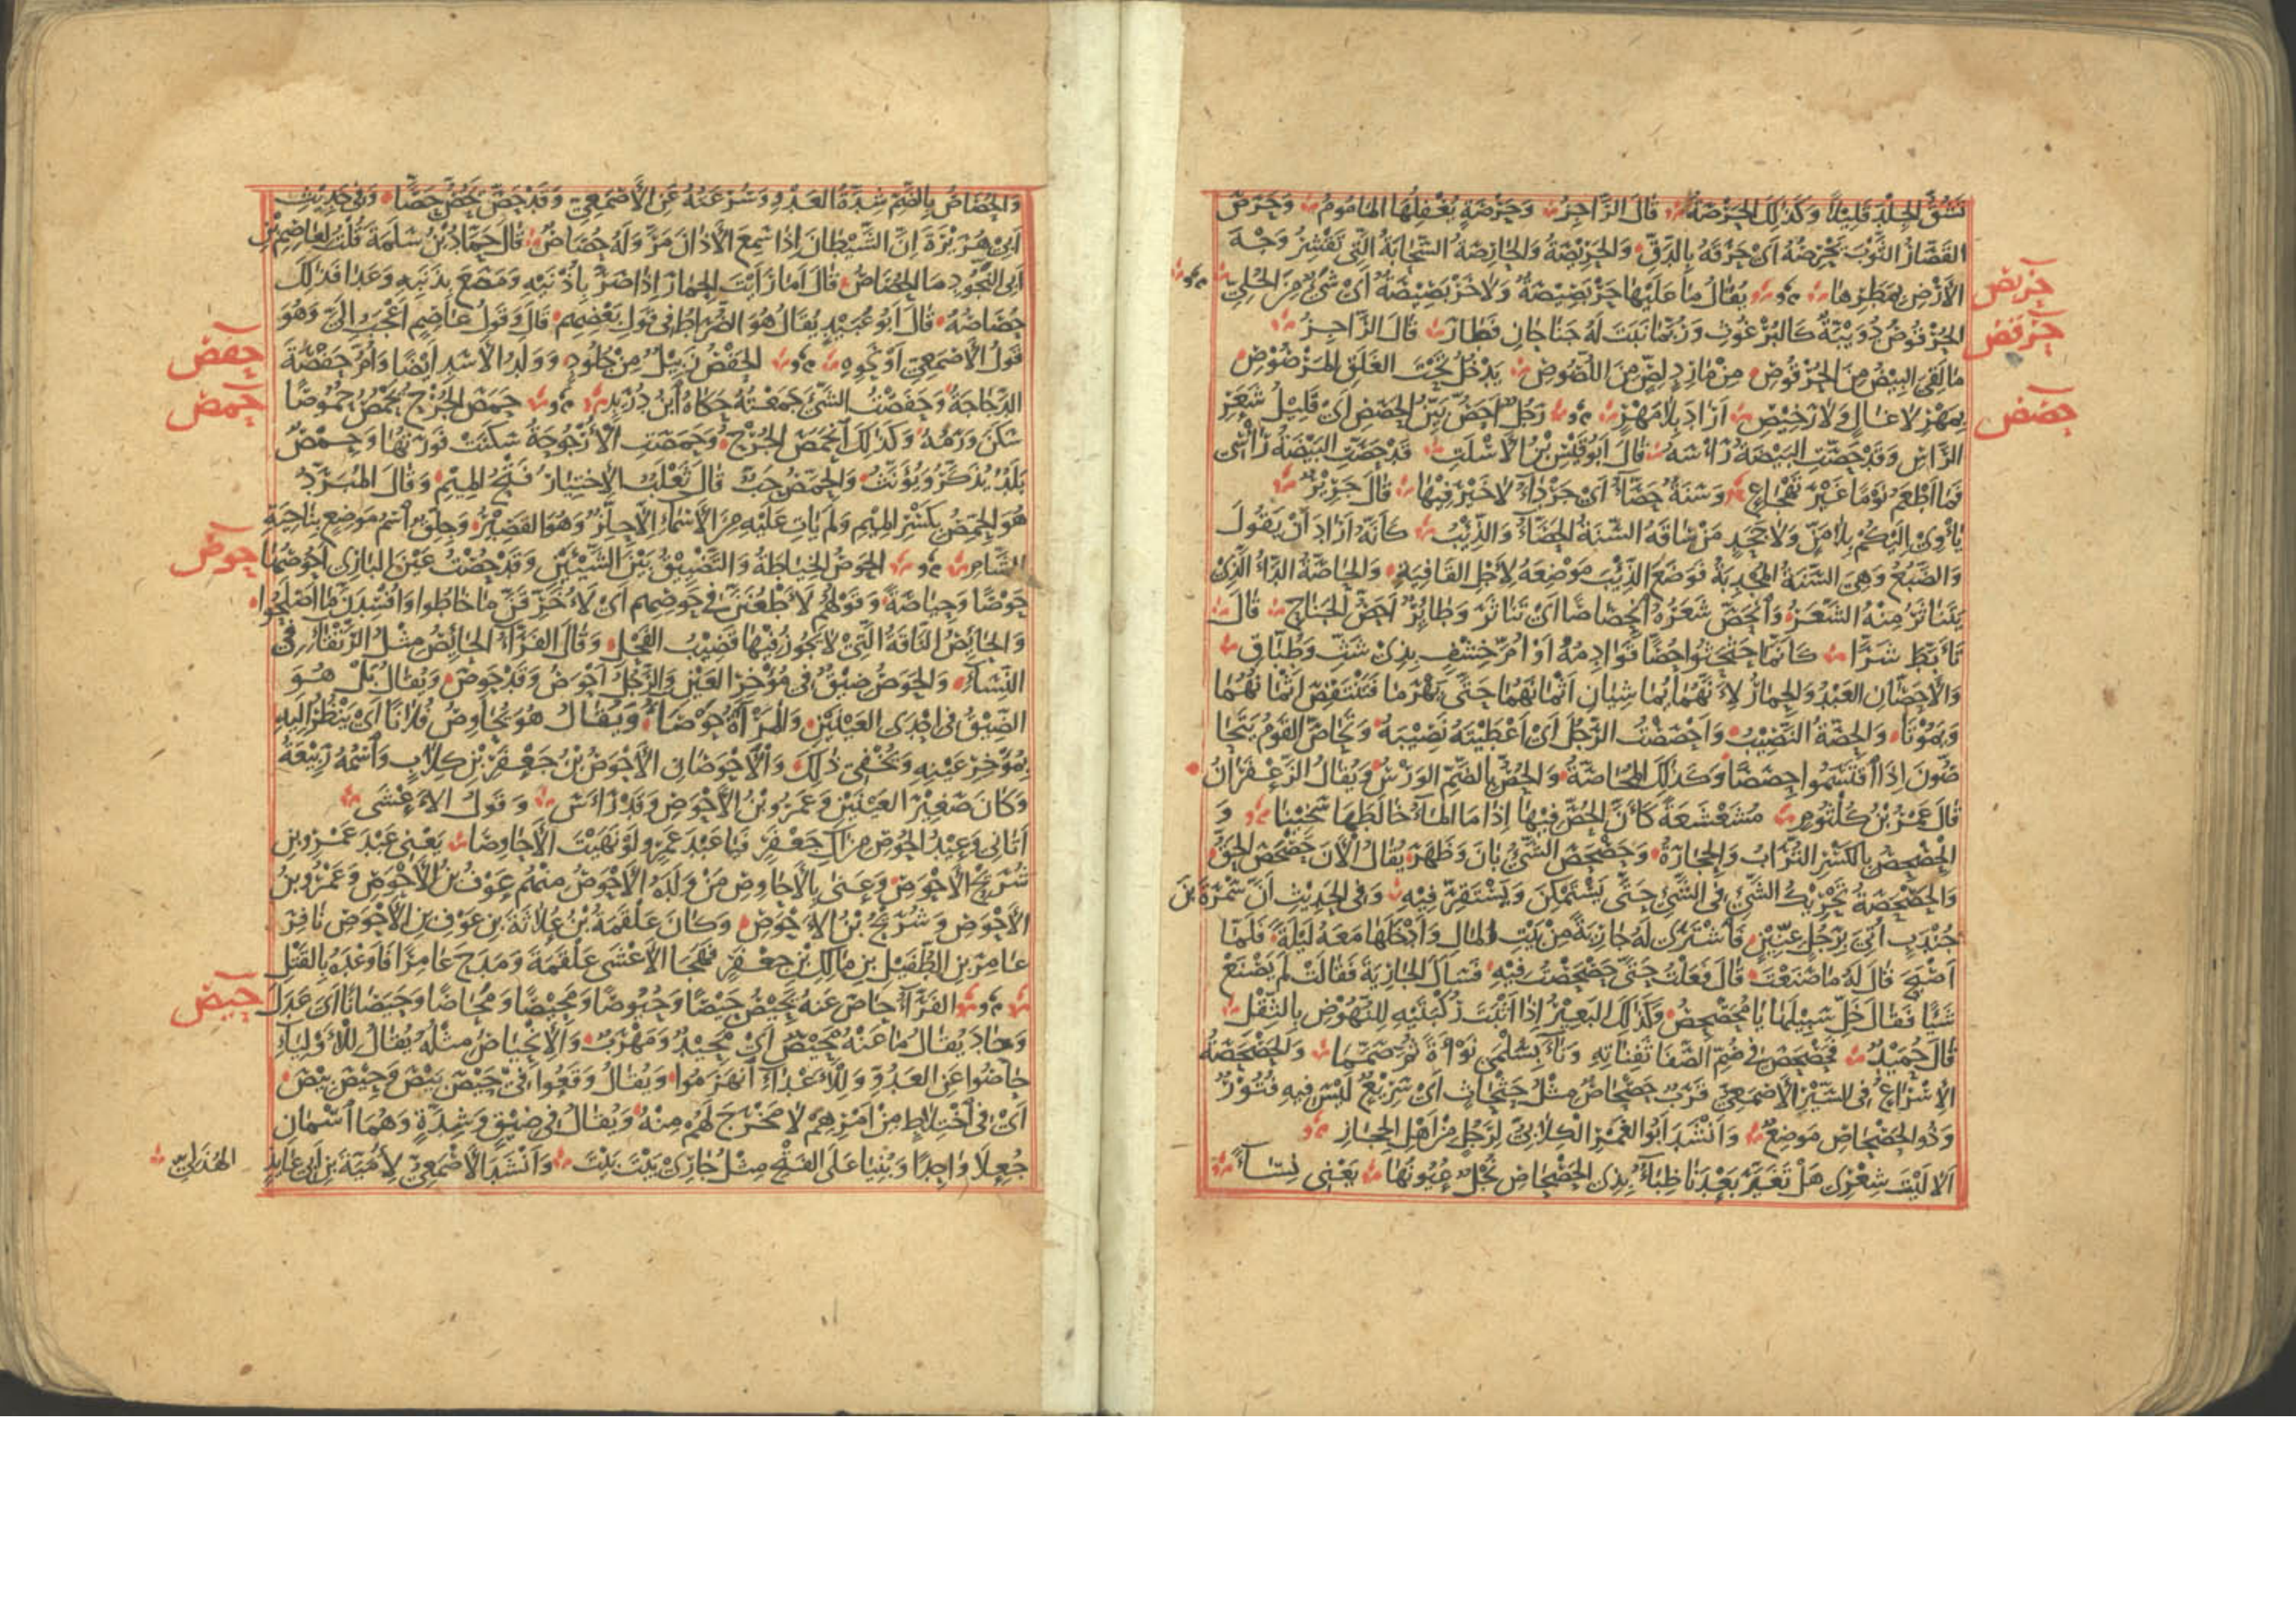 تشق الجلد قليلا وكذلك الحرصة قال الراجز وحرصة يغفلها المأموم وحرص
القصار الثوب يحرصه اى خرقه بالدق والحريصة والحارصة السحابة التى تقشر وجه
الارض بمطرها يقال ما عليها حربصيصة ولا خربصيصة اى شىء من الحلى
حربص
الحرقوص دويبة كالبرغوث وربما نبت له جناحان فطار قال الراجز
حرقص
ما لقى البيض من الحرقوص من مارد لص من اللصوص يدخل تحت الغلق المرصوص
بمهر لا غال ولا رخيص اراد بلا مهر رجل احص بين الحصص اى قليل شعر
حصص
الراس وقد حصت البيضة رأسه قال ابو قيس بن الاسلت قد حصت البيضة رأسى
فما اطعم نوما غير تهجاع وسنة حصاء اى جرداء لا خير فيها قال جرير
يأوى اليكم بلا من ولا جحد من ساقه السنة الحصاء والذيب كأنه اراد ان يقول
والضبع وهى السنة المجدبة فوضع الذئب موضعه لاجل القافية والحاصة الداء الذى
يتناثر منه الشعر وانحص شعره انحصاصا اى تناثر وطائر احص الجناح قال
تأبط شرا كأنما حثحثوا حصا قوادمه او ام خشف بذى شث وطباق
والاحصان العبد والحمار لانهما يماشيان اثمانهما حتى يهرما فتنتقص اثمانهما
ويموتا والحصة النصيب واحصصت الرجل اى اعطيته نصيبه وتحاص القوم يتحا
صون اذا اقتسموا حصصا وكذلك المحاصة والحص بالضم الورس ويقال الزعفران
قال عمر بن كلثوم مشعشعة كأن الحص فيها اذا ما الماء خالطها سخينا و
الحصحص بالكسر التراب والحجارة وحصحص الشىء بان وظهر يقال الآن حصحص الحق
والحصحصة تحريك الشىء فى الشىء حتى يستمكن ويستقر فيه وفى الحديث ان سمرة بن
جندب اتى برجل عنين فاشترى له جارية من بيت المال وادخلها معه ليلة فلما
اصبح قال له ما صنعت قال فعلت حتى حصحصت فيه فسأل الجارية فقالت لم يصنع
شيئا فقال خل سبيلها يا محصحص وكذلك البعير اذا اثبت ركبتيه للنهوض بالثقل
قال حميد فحصحص فى صم الصفا ثفناته وناء بسلمى نوءة ثم صمما والحصحصة
الاسراع فى السير الاصمعى قرب حصحاص مثل حثحاث اى سريع ليس فيه فتور
وذو الحصحاص موضع وانشد ابو الغمر الكلابى لرجل من اهل الحجاز
الا ليت شعرى هل تغير بعدنا ظباء بذى الحصحاص نجل عيونها يعنى نساء
والحصاص بالضم شدة العدو وسرعته عن الاصمعى وقد حص يحص حصا وفى حديث
ابى هريرة ان الشيطان اذا سمع الاذان مر وله حصاص قال حماد بن سلمة قلت لعاصم بن
ابى النجود ما الحصاص قال اما رايت الحمار اذا صر باذنيه ومصع بذنبه وعدا فذلك
حصاصه قال ابو عبيد يقال هو الضراط فى قول بعضهم قال وقول عاصم اعجب الى وهو
قول الاصمعى او نحوه الحفص زبيل من جلود وولد الاسد ايضا وام حفصة
حفص
الدجاجة وحفصت الشىء جمعته حكاه ابن دريد حمص الجرح يحمص حموصا
حمص
سكن ورمه وكذلك انحمص الجرح وحمصت الارجوحة سكنت فورتها وحمص
بلد يذكر ويؤنث والحمص حب قال ثعلب الاختيار فتح الميم وقال المبرد
هو الحمص بكسر الميم ولم يات عليه من الاسماء الا حلز وهو القصير وجلق اسم موضع بناحية
الشام الحوص الخياطة والتضييق بين الشيئين وقد حصت عين البازى احوصها
حوص
حوصا وحياصة وقولهم لاطعنن فى حوصهم اى لاخرقن ما خاطوا وافسدن ما اصلحوا
والحائص الناقة التى لا يجوز فيها قضيب الفحل وقال الفراء الحائص مثل الرتقاء فى
النساء والحوص ضيق فى مؤخر العين والرجل احوص وقد حوص ويقال بل هو
الضيق فى احدى العينين والمرأة حوصاء ويقال هو يحاوص فلانا اى ينظر اليه
بمؤخر عينه ويخفى ذلك والاحوصان الاحوص بن جعفر بن كلاب واسمه ربيعة
وكان صغير العينين وعمرو بن الاحوص وقد رأس وقول الاعشى
اتانى وعيد الحوص من آل جعفر فيا عبد عمرو لو نهيت الاحاوصا يعنى عبد عمرو بن
شريح الاحوص وعنى بالاحاوص من ولده الاحوص منهم عوف بن الاحوص وعمرو بن
الاحوص وشريح بن الاحوص وكان علقمة بن علاثة بن عوف بن الاحوص نافر
عامر بن الطفيل بن مالك بن جعفر فهجا الاعشى علقمة ومدح عامرا فاوعده بالقتل
الفراء حاص عنه يحيص حيصا وحيوصا ومحيصا ومحاصا وحيصانا اى عدل
حيص
وحاد يقال ما عنه محيص اى محيد ومهرب والانحياص مثله يقال للاولياء
حاصوا عن العدو وللاعداء انهزموا ويقال وقعوا فى حيص بيص وحيص بيص
اى فى اختلاط من امرهم لا مخرج لهم منه ويقال فى ضيق وشدة وهما اسمان
جعلا واحدا وبنيا على الفتح مثل جارى بيت بيت وانشد الاصمعى لامية بن ابى عايذ الهذلى